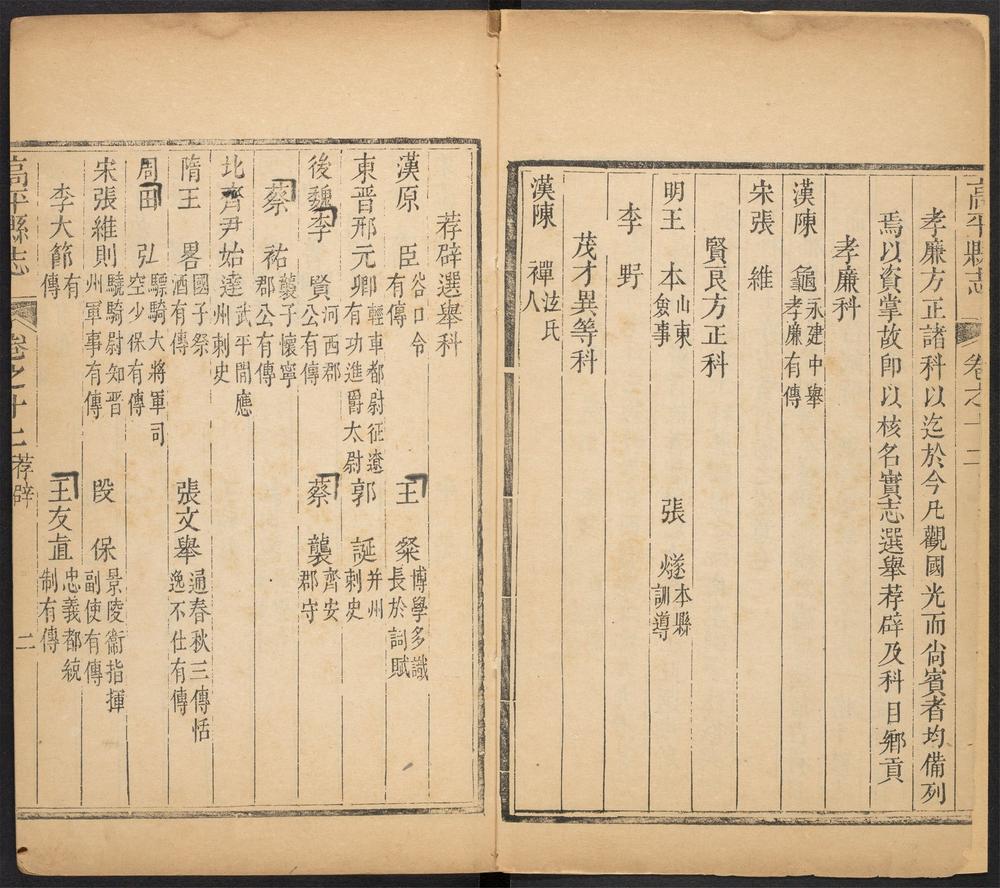 高平縣志 卷之十二
孝廉方正諸科以迄於今凡觀國光而尚賓者均備列
焉以資掌故即以核名實志選舉荐辟及科目鄉貢
孝廉科
漢陳 龜 永建中舉孝廉有傳
宋張 維
賢良方正科
明王 本 山東僉事 張 燧 本縣訓導
李 野
茂才異等科
漢陳 禪 泫氏人
荐辟選舉科
漢原 臣 谷口令有傳 王 粲 博學多識長於詞賦
東晉邢元卿 輕車都尉征遼有功進爵太尉 郭 誕 并州刺史
後魏李 賢 河西郡公有傳 蔡 襲 齊安郡守
蔡 祐 襲子懷寧郡公有傳
北齊尹始達 武平間應州刺史
隋王 畧 國子祭酒有傳 張文舉 通春秋三傳恬逸不仕有傳
周田 弘 驃騎大將軍司空少保有傳
宋張維則 驍騎尉知晋州軍事有傳 段 保 景陵衞指揮副使有傳
李大節 有傳 王友直 忠義都統制有傳
高平縣志 卷之十二 荐辟 二